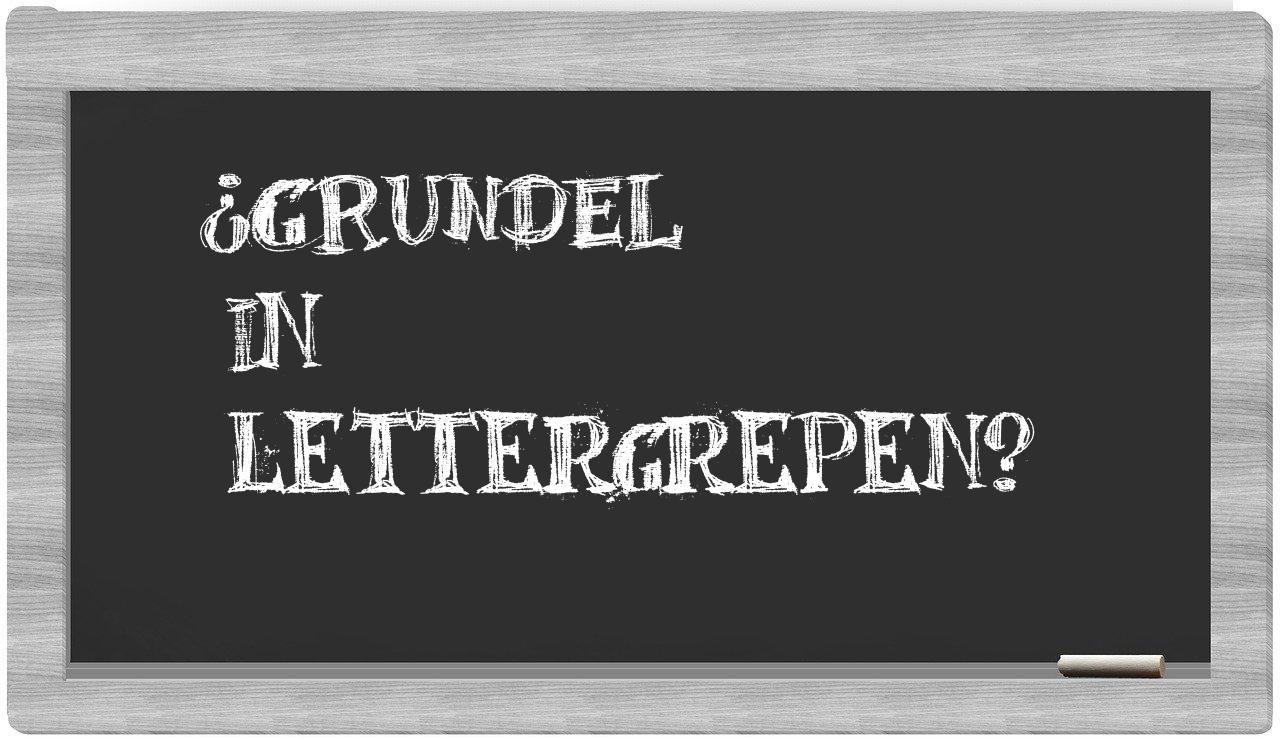 ¿GRUNDEL
IN
LETTERGREPEN?